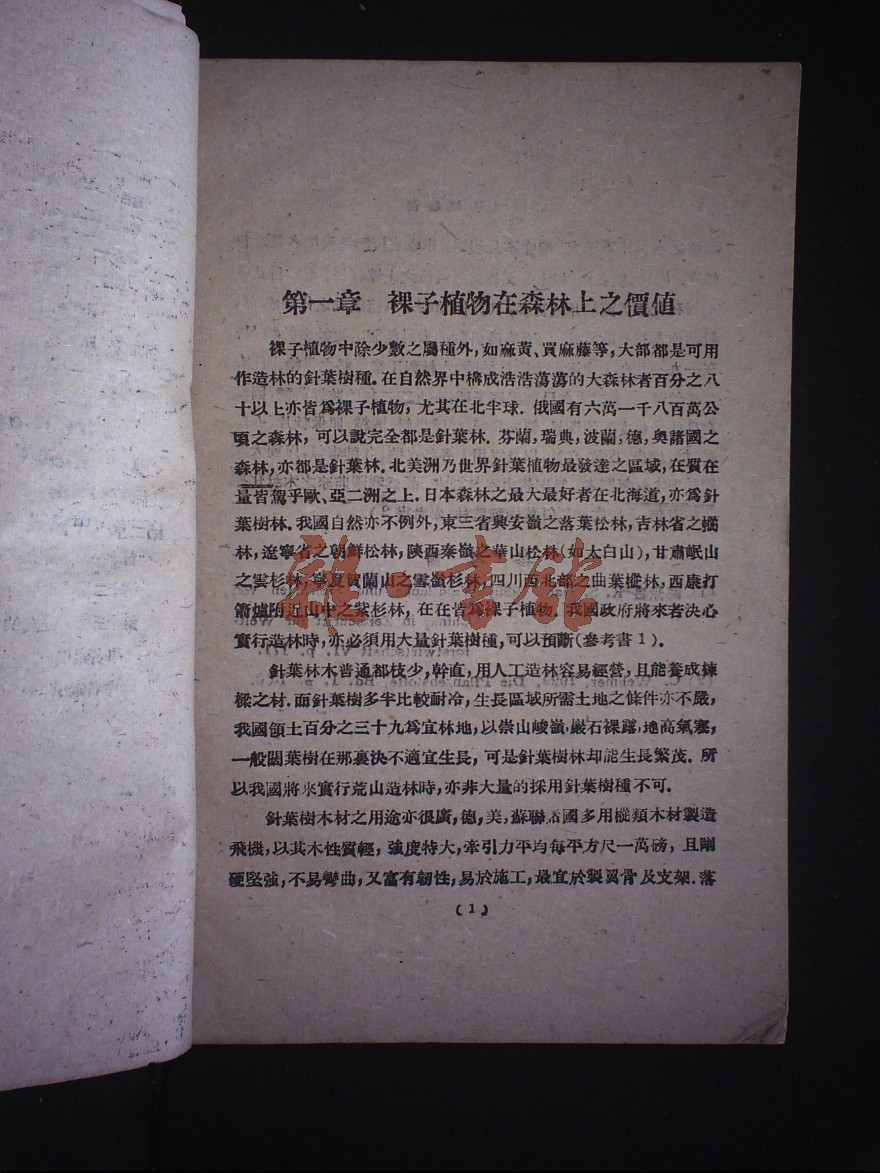 第一章 裸子植物在森林上之價值
裸子植物中除少數之屬種外，如麻黃、買麻藤等，大部都是可用
作造林的針葉樹種．在自然界中構成浩浩蕩蕩的大森林者百分之八
十以上亦皆爲裸子植物，尤其在北半球．俄國有六萬一千八百萬公
頃之森林，可以說完全都是針葉林．芬蘭，瑞典，波蘭，德，奧諸國之
森林，亦都是針葉林．北美洲乃世界針葉植物最發達之區域，在質在
量皆駕乎歐、亞二洲之上．日本森林之最大最好者在北海道，亦爲針
葉樹林．我國自然亦不例外，東三省興安嶺之落葉松林，吉林省之樅
林，遼寧省之朝鮮松林，陝西秦嶺之華山松林（如太白山），甘肅岷山
之雲杉林，寧夏賀蘭山之雪嶺杉林，四川西北部之曲葉樅林，西康打
箭爐附近山中之紫杉林，在在皆爲裸子植物．我國政府將來若決心
實行造林時，亦必須用大量針葉樹種，可以預斷（參考書1）．
針葉林木普通都枝少，幹直，用人工造林容易經營，且能養成棟
樑之材．而針葉樹多半比較耐冷，生長區域所需土地之條件亦不嚴，
我國領土百分之三十九爲宜林地，以崇山峻嶺，巖石裸露，地高氣寒，
一般闊葉樹在那裏決不適宜生長，可是針葉樹林却能生長繁茂．所
以我國將來實行荒山造林時，亦非大量的採用針葉樹種不可．
針葉樹木材之用途亦很廣，德，美，蘇聯諸國多用樅類木材製造
飛機，以其木性質輕，強度特大，牽引力平均每平方尺一萬磅，且剛
硬堅強，不易彎曲，又富有韌性，易於施工，最宜於製翼骨及支架．落
（1）
雜·書館